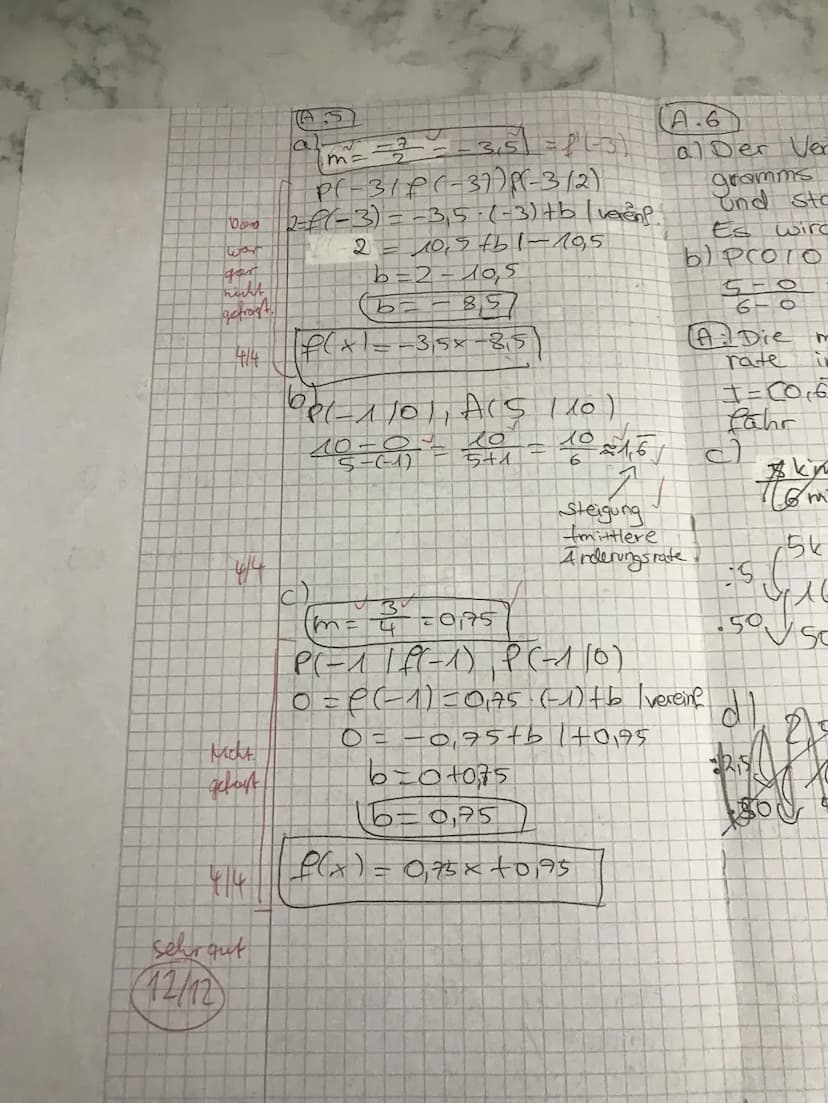 A.5
a) m = -7/2 = -3,5 = f'(-3)
P(-3/f(-3)) P(-3/2)
2=f(-3) = -3,5·(-3)+b |vereinf.
2 = 10,5+b |-10,5
b=2-10,5
b=-8,5
f(x)=-3,5x-8,5
war
gar
nicht
gefragt.
4/4
b) P(-1/0), A(5/10)
10-0/5-(-1) = 10/5+1 = 10/6 ≈ 1,6
Steigung
mittlere
Änderungsrate
4/4
c)
m = 3/4 = 0,75
P(-1/f(-1), P(-1/0)
0 = f(-1) = 0,75·(-1)+b |vereinf
0 = -0,75+b |+0,75
b=0+0,75
b=0,75
f(x) = 0,75x+0,75
Nicht
gefragt
4/4
sehr gut
12/12
A.6
a) Der Ver
gramms
und sta
Es wird
b) P(0/0
5-0
6-0
A: Die m
rate i
I=[0,6
fähr
c)
km
6 mi
5k
:5
·50
50
d)